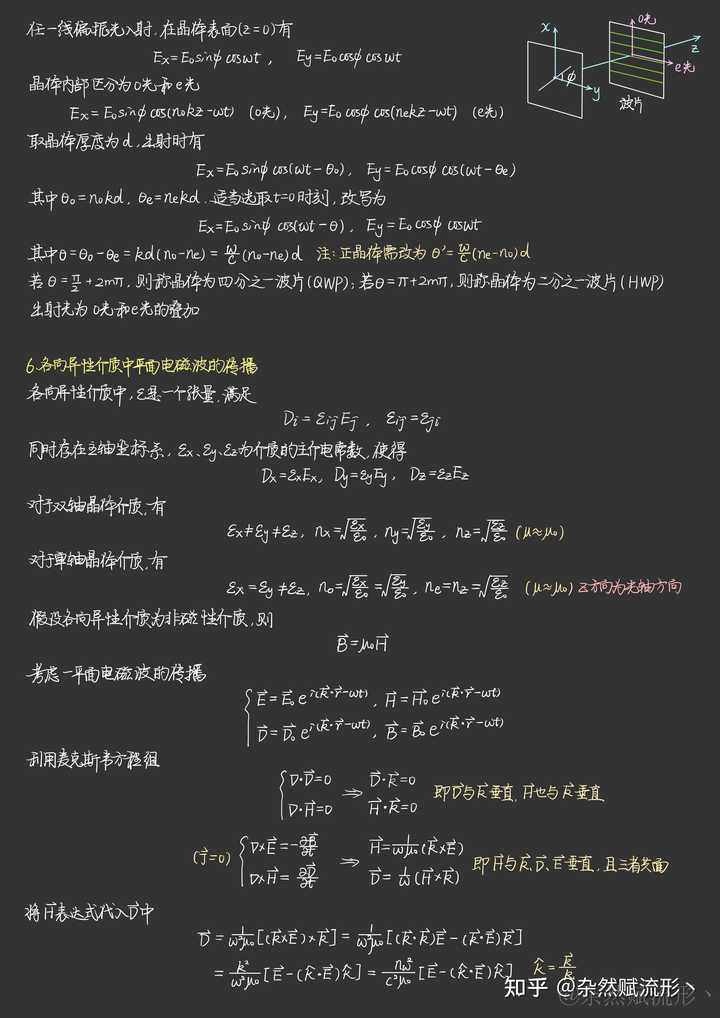 任一线偏振光入射,在晶体表面(z=0)有
Ex=E₀sinϕ cosωt , Ey=E₀cosϕ cosωt
晶体内部区分为o光和e光
Ex=E₀sinϕ cos(n₀kz-ωt) (o光), Ey=E₀cosϕ cos(nₑkz-ωt) (e光)
取晶体厚度为d,出射时有
Ex=E₀sinϕ cos(ωt-θ₀), Ey=E₀cosϕ cos(ωt-θₑ)
其中θ₀=n₀kd, θₑ=nₑkd.适当选取t=0时刻,改写为
Ex=E₀sinϕ cos(ωt-θ), Ey=E₀cosϕ cosωt
其中θ=θ₀-θₑ=kd(n₀-nₑ)=ω/c(n₀-nₑ)d 注:正晶体需改为θ'=ω/c(nₑ-n₀)d
若θ=π/2+2mπ,则称晶体为四分之一波片(QWP);若θ=π+2mπ,则称晶体为二分之一波片(HWP)
出射光为o光和e光的叠加
x
ϕ
y
o光
z
e光
波片
6.各向异性介质中平面电磁波的传播
各向异性介质中,ε是一个张量,满足
Di=εijEj, εij=εji
同时存在主轴坐标系,εx、εy、εz为介质的主介电常数,使得
Dx=εxEx, Dy=εyEy, Dz=εzEz
对于双轴晶体介质,有
εx≠εy≠εz, nx=√(εx/ε₀), ny=√(εy/ε₀), nz=√(εz/ε₀) (μ≈μ₀)
对于单轴晶体介质,有
εx=εy≠εz, n₀=√(εx/ε₀)=√(εy/ε₀), nₑ=nz=√(εz/ε₀) (μ≈μ₀) z方向为光轴方向
假设各向异性介质为非磁性介质,则
B⃗=μ₀H⃗
考虑一平面电磁波的传播
E⃗=E⃗₀e^{i(k⃗·r⃗-ωt)}, H⃗=H⃗₀e^{i(k⃗·r⃗-ωt)}
D⃗=D⃗₀e^{i(k⃗·r⃗-ωt)}, B⃗=B⃗₀e^{i(k⃗·r⃗-ωt)}
利用麦克斯韦方程组
∇·D⃗=0 ⇒ D⃗·k⃗=0 即D⃗与k⃗垂直,H⃗也与k⃗垂直
∇·H⃗=0 H⃗·k⃗=0
(J⃗=0) ∇×E⃗=-∂B⃗/∂t ⇒ H⃗=1/ωμ₀(k⃗×E⃗) 即H⃗与k⃗、D⃗、E⃗垂直,且三者共面
∇×H⃗=∂D⃗/∂t D⃗=1/ω(H⃗×k⃗)
将H⃗表达式代入D⃗中
D⃗=1/ω²μ₀[(k⃗×E⃗)×k⃗]=1/ω²μ₀[(k⃗·k⃗)E⃗-(k⃗·E⃗)k⃗]
=k²/ω²μ₀[E⃗-(k̂·E⃗)k̂]=nω²/c²μ₀[E⃗-(k̂·E⃗)k̂] k̂=k⃗/k
知乎 @杂然赋流形丶
@杂然赋流形丶